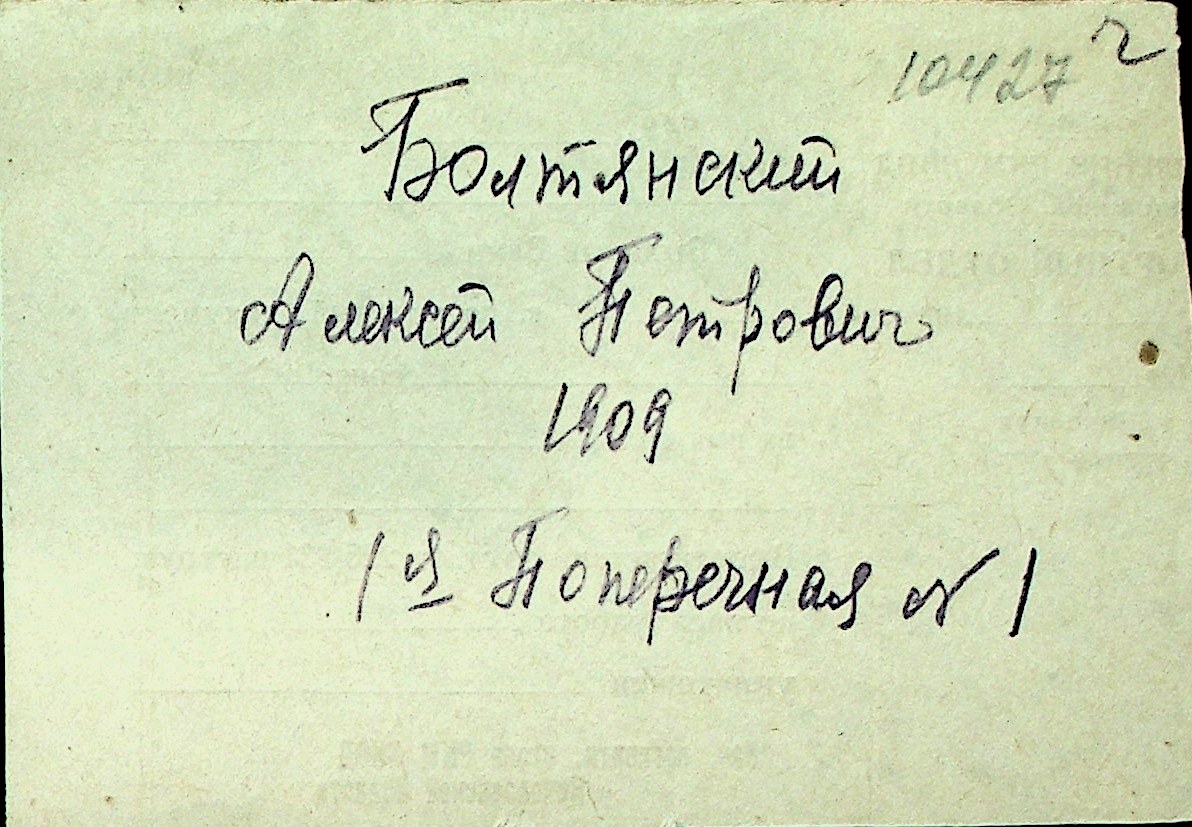 10427 ч
Болтянский
Алексей Петрович
1909
1я Поперечная № 1